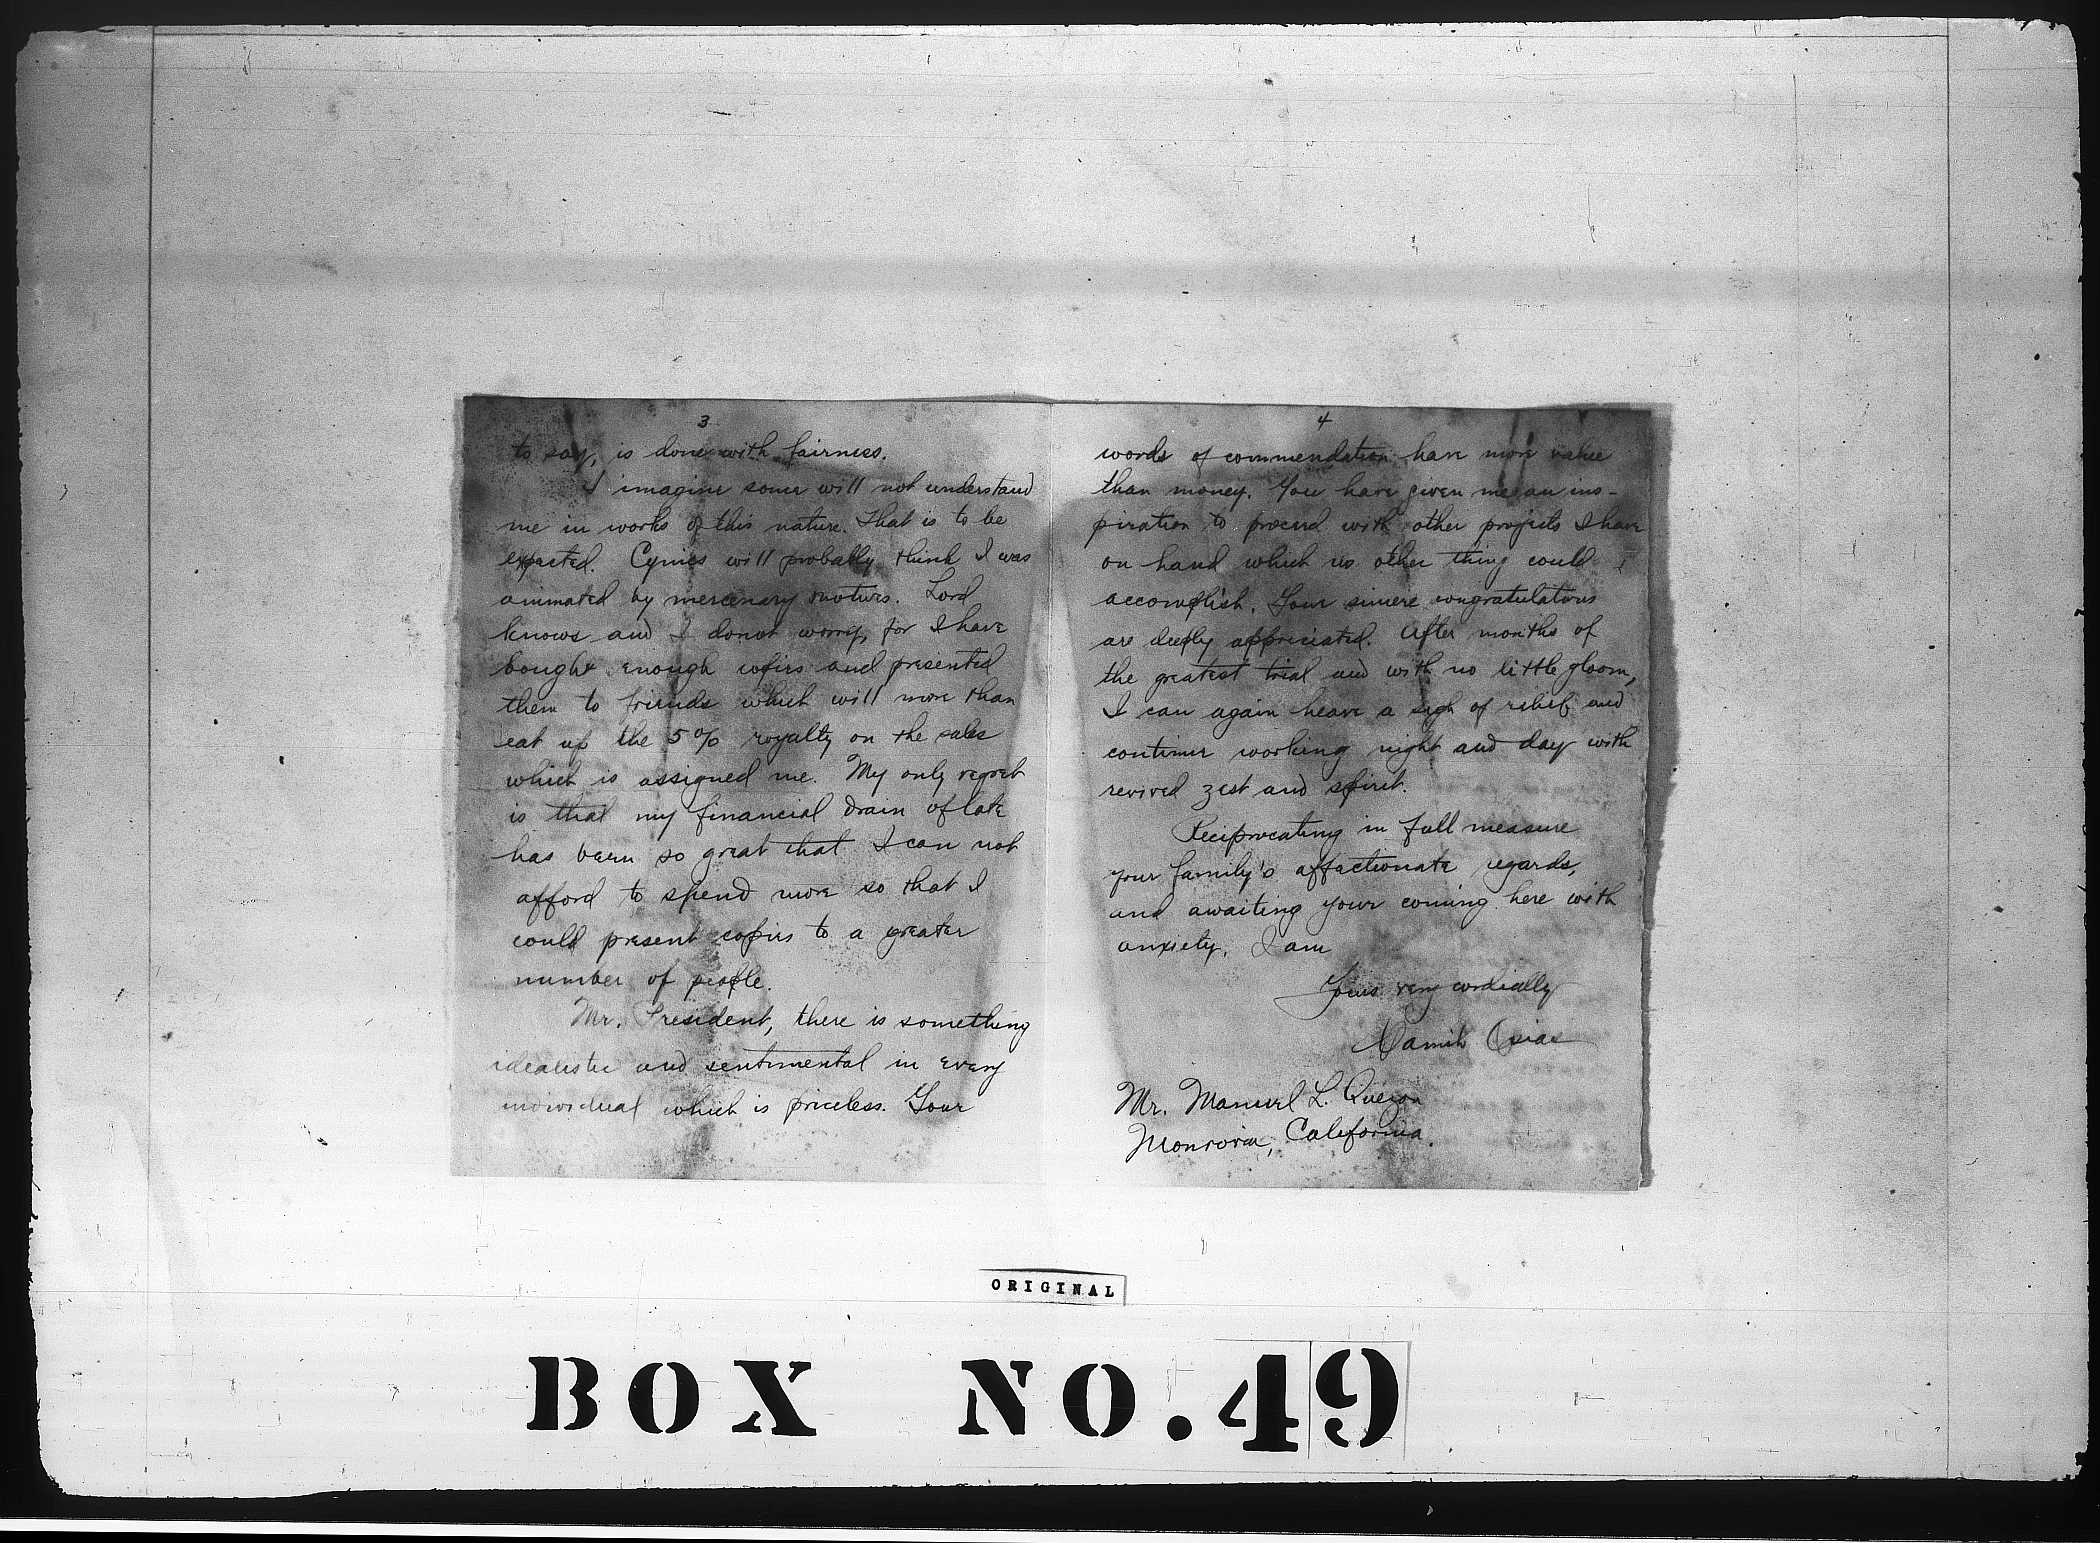 3
to say, is done with fairness.
I imagine some will not understand
me in works of this nature. That is to be
expected. Cynics will probably think I was
animated by mercenary motives. Lord
knows and I donot worry, for I have
bought enough copies and presented
them to friends which will more than
eat up the 5% royalty on the sales
which is assigned me. My only regret
is that my financial drain of late
has been so great that I can not
afford to spend more so that I
could present copies to a greater
number of people.
Mr. President, there is something
idealistic and sentimental in every
individual which is priceless. Your
4
words of commendation have more value
than money. You have given me an ins-
piration to proceed with other projects I have
on hand which no other thing could
accomplish. Your sincere congratulations
are deeply appreciated. After months of
the greatest trial and with no little gloom,
I can again heave a sigh of relief and
continue working night and day with
revived zest and spirit.
Reciprocating in full measure
your family's affectionate regards,
and awaiting your coming here with
anxiety, I am
Yours very cordially
Camilo Osias
Mr. Manuel L. Quezon
Monrovia, California.
ORIGINAL
BOX NO. 49